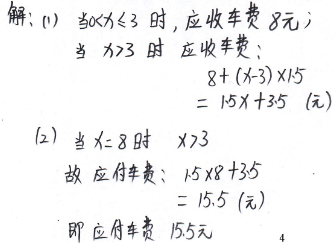 解: (1) 当0<x≤3 时, 应收车费 8元;
当 x>3 时 应收车费:
8+(x-3)×1.5
= 1.5x+3.5 (元)
(2) 当 x=8时 x>3
故 应付车费: 1.5×8+3.5
= 15.5 (元)
即 应付车费 15.5元
4